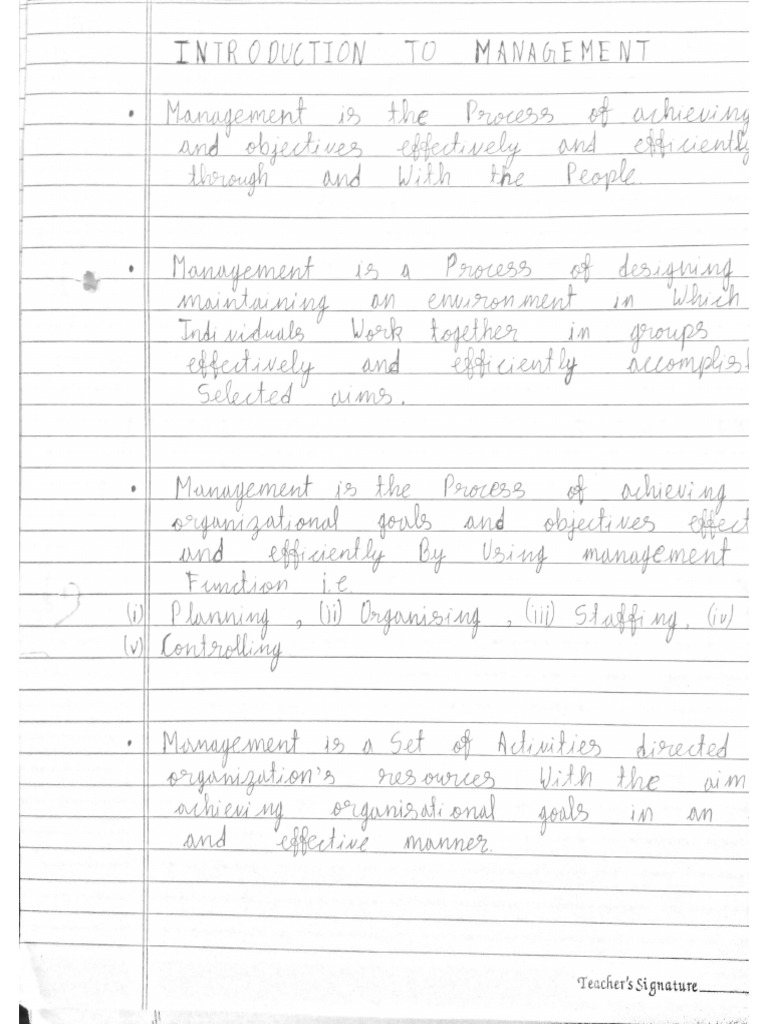 INTRODUCTION TO MANAGEMENT
• Management is the Process of achieving
and objectives effectively and efficiently
through and With the People
• Management is a Process of designing
maintaining an environment in Which
Individuals Work together in groups
effectively and efficiently accomplis
Selected aims.
• Management is the Process of achieving
organizational goals and objectives effect
and efficiently By Using management
Function i.e.
(i) Planning, (ii) Organising, (iii) Staffing, (iv)
(v) Controlling
• Management is a Set of Activities directed
organization's resources With the aim
achieving organisational goals in an
and effective manner.
Teacher's Signature